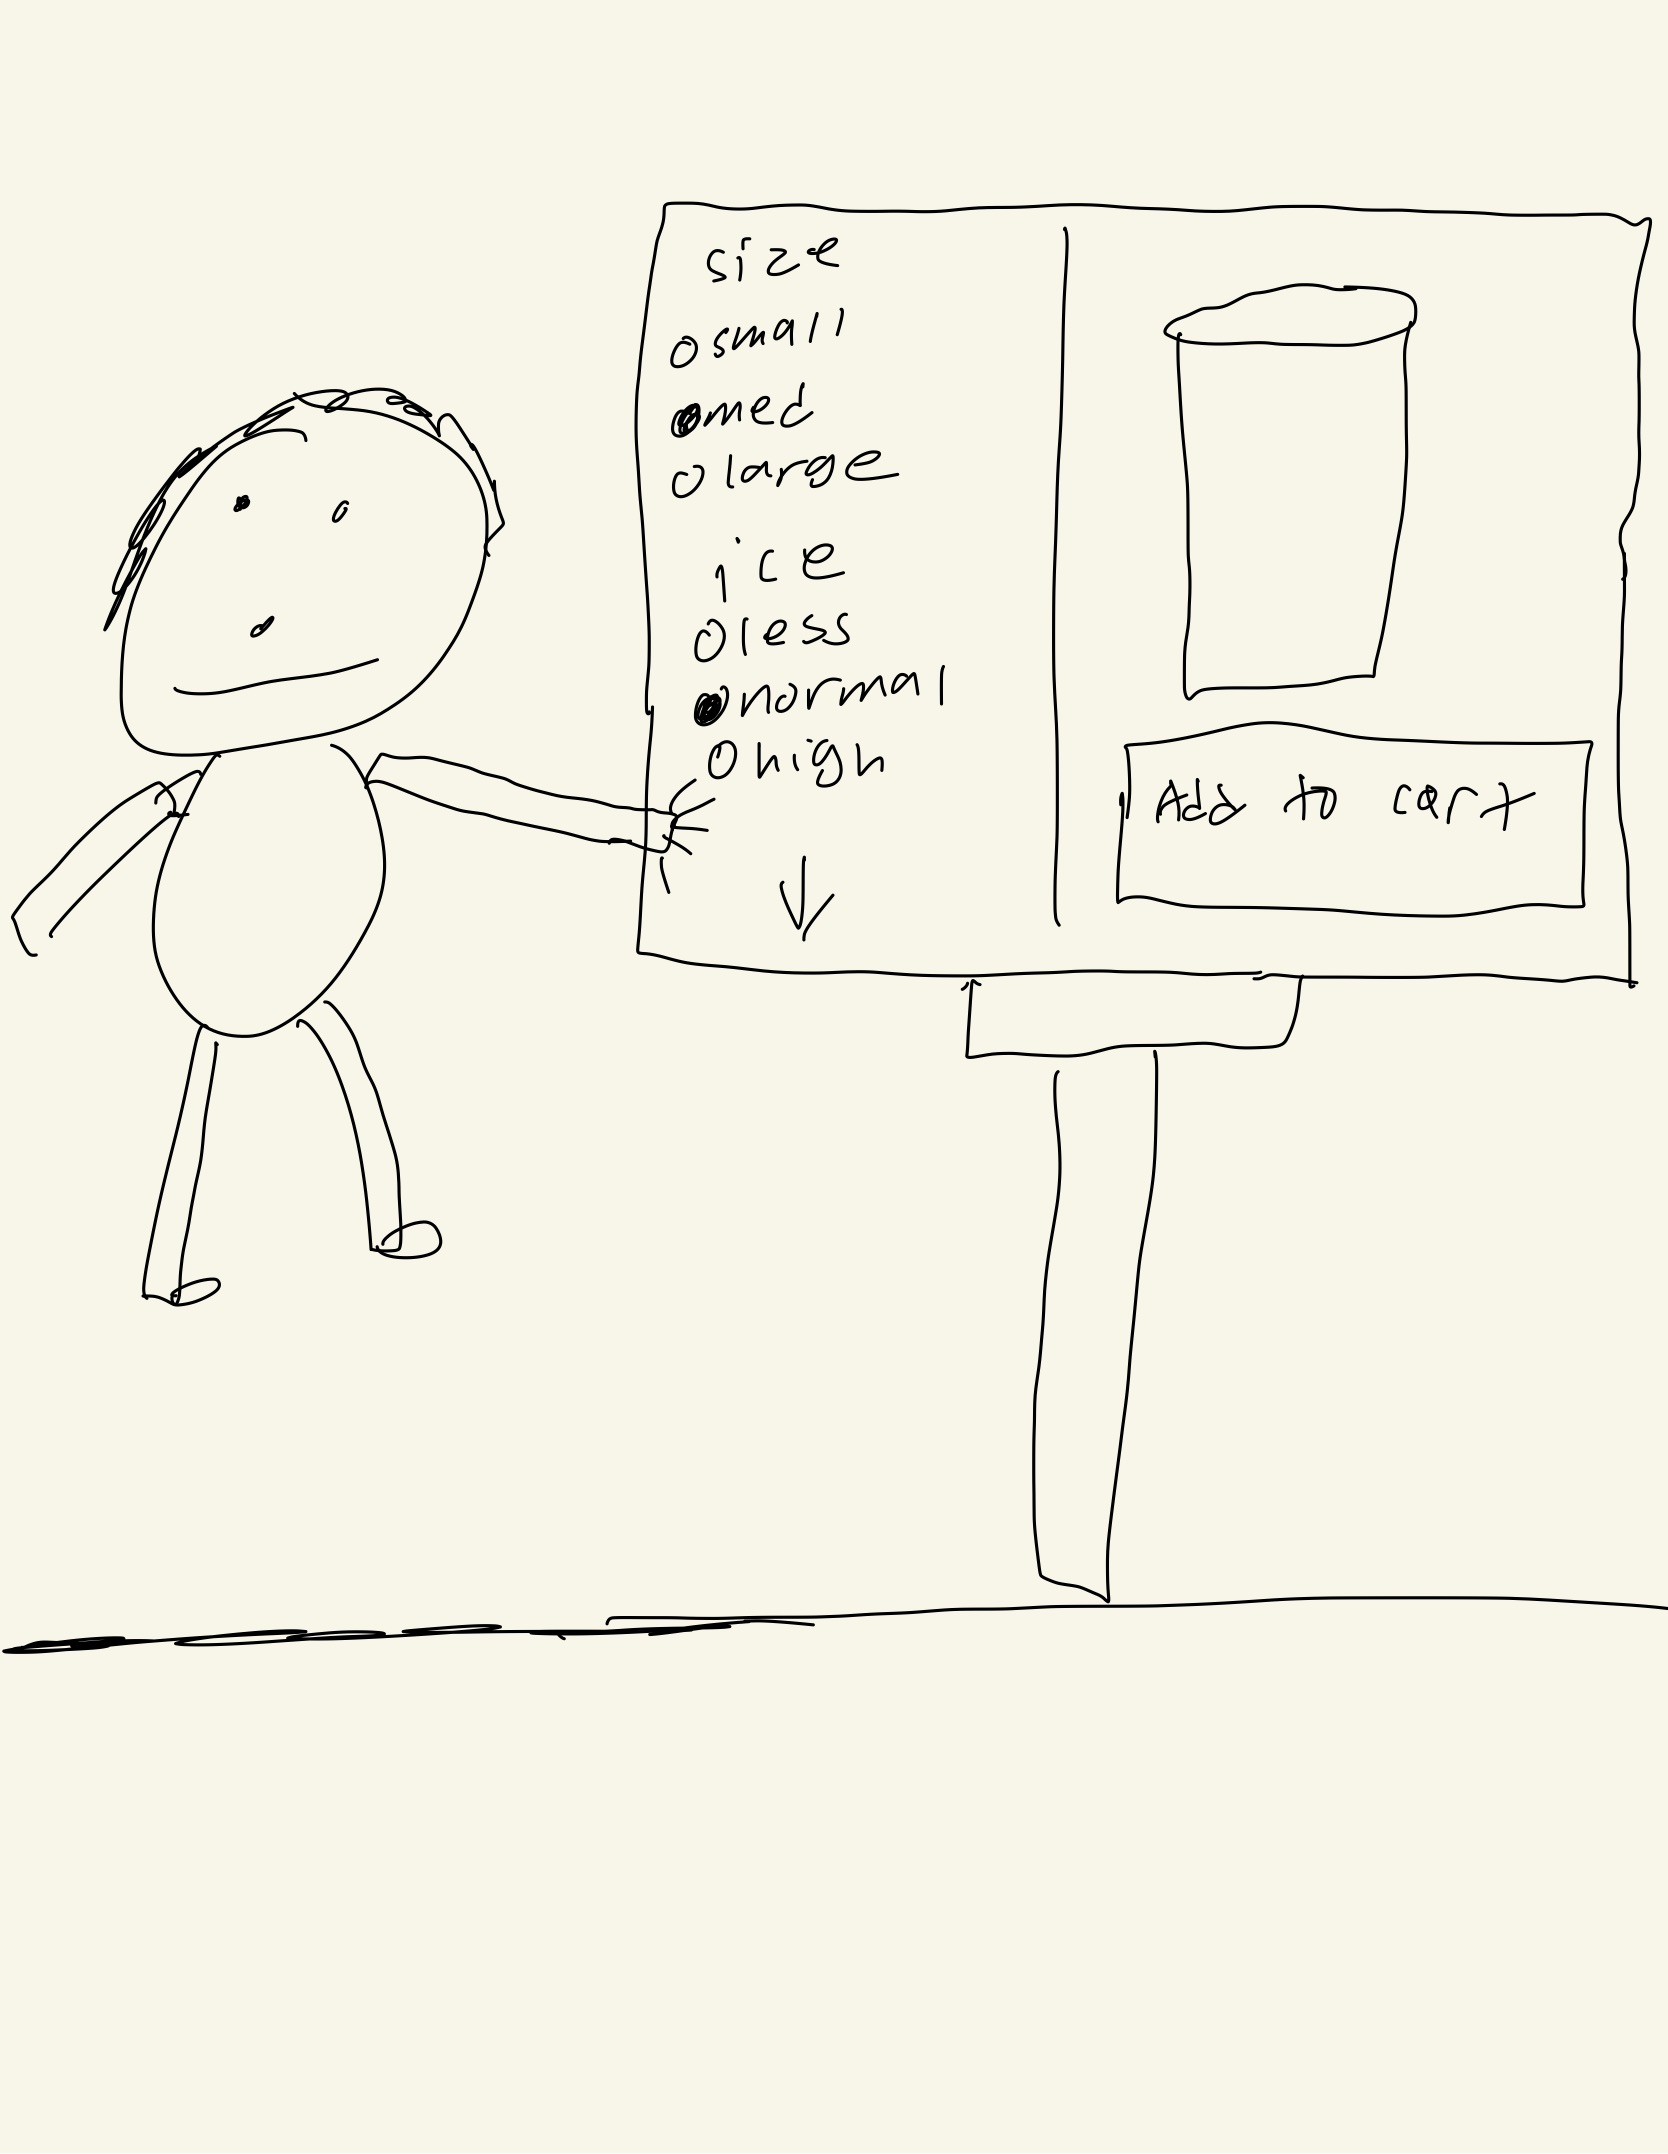 size
small
med
large
ice
less
normal
high
Add to cart